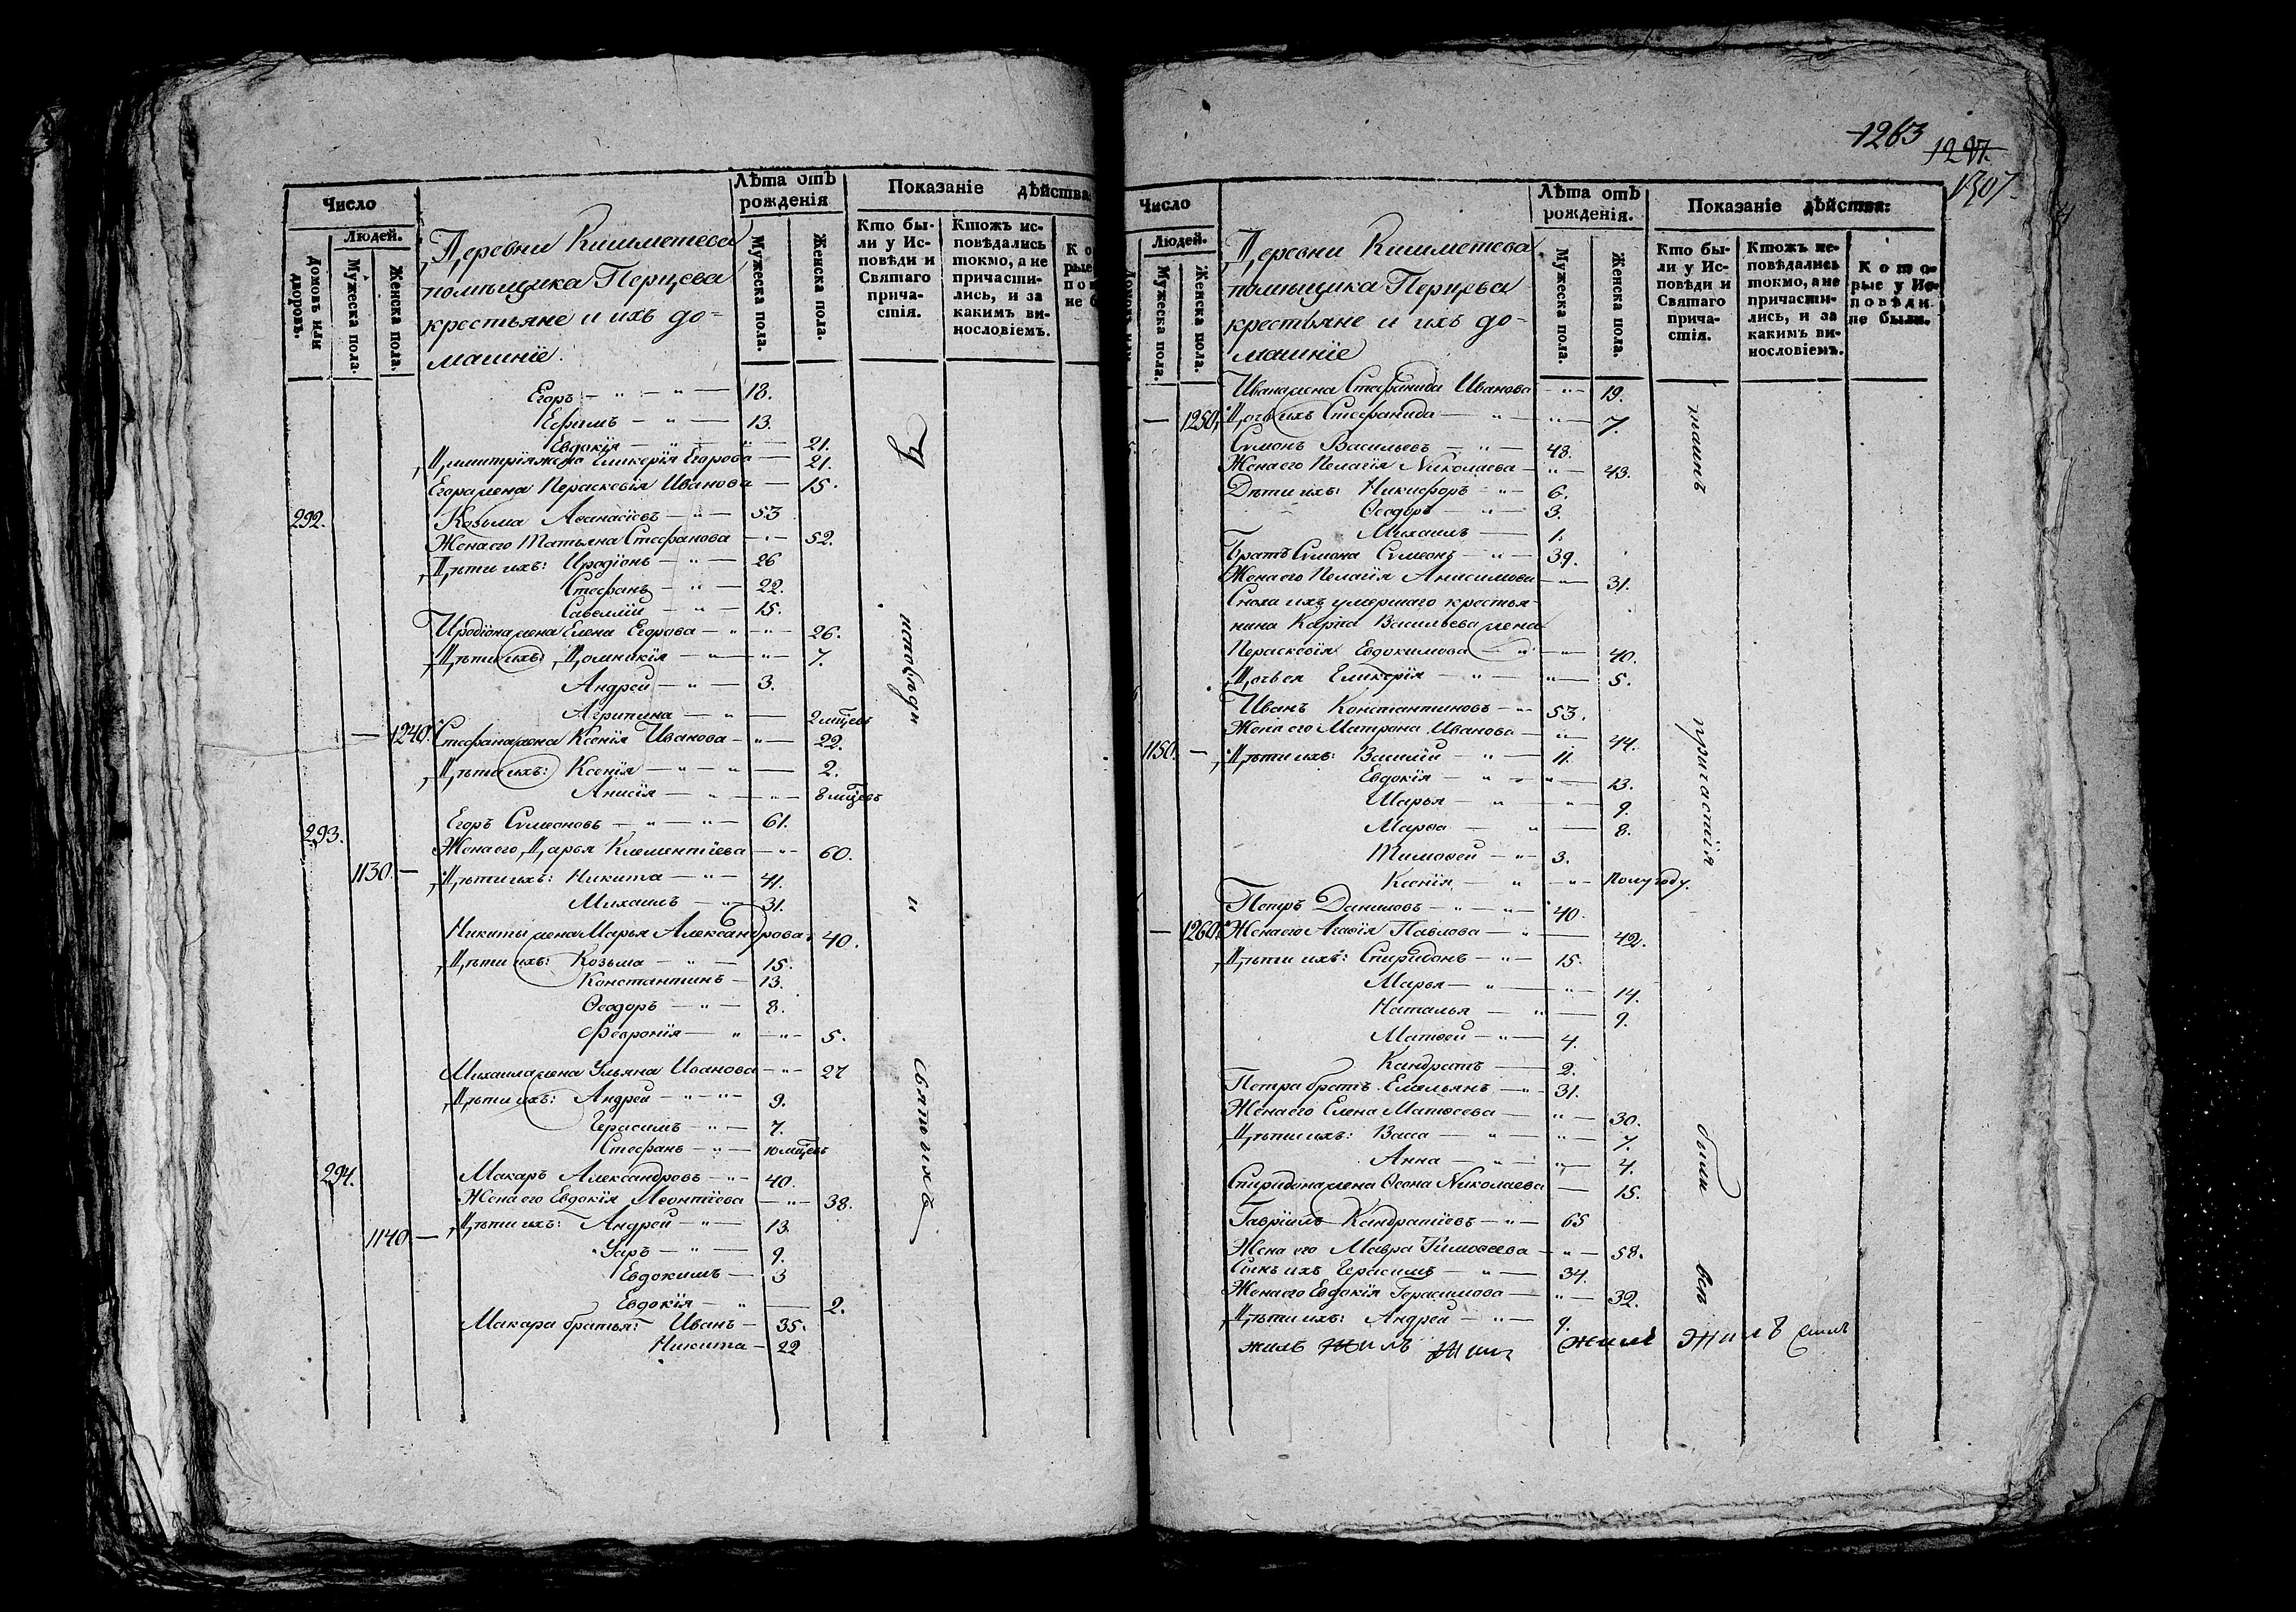 Число
Людей.
Домовъ или дворовъ.
Мужеска пола.
Женска пола.
Деревни Кишметева
помѣщика Перцева
крестьяне и ихъ до=
машніе.
Лѣта отъ
рожденія
Мужеска пола.
Женска пола.
Показаніе дѣйства
Кто бы-
ли у Ис-
повѣди и
Святаго
прича-
стія.
Ктожъ ис-
повѣдались
токмо, а не
причасти-
лись, и за
какимъ ви-
нословіемъ.
Егоръ — " — " — 18.
Ефимъ — " — 13.
Евдокія — " — " — 21.
Димитрія жена Гликерія Егорова — 21.
Егора жена Параскевія Иванова — 15.
292. Козьма Аѳанасіевъ — " — 53
Жена его Татьяна Стефанова — " — 52.
Дѣти ихъ: Иродіонъ — " — 26
Стефанъ — " — 22.
Савелій — " — 15.
Иродіона жена Елена Егорова — " — " — 26.
Дѣти ихъ: Домникія — " — " — 7.
Андрей — " — 3.
Агрипина — " — 2 мѣсцевъ
— 1240. Стефана жена Ксенія Иванова — " — 22.
Дѣти ихъ: Ксенія — " — " — 2.
Анисія — " — " — 8 мѣсцевъ
293. Егоръ Симеоновъ — " — " — 61.
Жена его Дарья Климентіева — " — 60.
1130. — Дѣти ихъ: Никита — " — 41.
Михаилъ — " — 31.
Никиты жена Марья Александрова. 40.
Дѣти ихъ: Козьма — " — 15.
Константинъ — 13.
Ѳеодоръ — " — 8.
Февронія — " — " — 5.
Михаила жена Ульяна Иванова — " — 27
Дѣти ихъ: Андрей — " — " — 9.
Герасимъ — " — 7.
Стефанъ — " — 10 мѣсцевъ
294. Макаръ Александровъ — " — 40.
Жена его Евдокія Леонтіева — " — 38.
1140 — Дѣти ихъ: Андрей — " — 13.
Уаръ — " — 9.
Евдокимъ — 3
Евдокія — " — 2.
Макара братья: Иванъ — 35.
Никита — 22
У исповѣди и святыхъ
1263
1297.
1307
Число
Людей.
Мужеска пола.
Женска пола.
Деревни Кишметева
помѣщика Перцева
крестьяне и ихъ до=
машніе
Лѣта отъ
рожденія.
Мужеска пола.
Женска пола.
Показаніе дѣйства:
Кто бы-
ли у Ис-
повѣди и
Святаго
прича-
стія.
Ктожъ ис-
повѣдались
токмо, а не
причасти-
лись, и за
какимъ ви-
нословіемъ.
Кото-
рые у Ис-
повѣди
не были.
Ивана жена Стефанида Иванова — " — 19.
— 1250. Дочь ихъ Стефанида — " — " — 7.
Симонъ Васильевъ — " — 48.
Жена его Пелагія Николаева — " — 43.
Дѣти ихъ: Никифоръ — " — 6.
Ѳеодоръ — " — 3.
Михаилъ — 1.
Братъ Симона Симеонъ — " — 39.
Жена его Пелагія Анисимова — " — 31.
Сноха ихъ умершаго крестья-
нина Карпа Васильева жена
Параскевія Евдокимова — " — " — 40.
Дочь ея Гликерія — " — " — 5.
Иванъ Константиновъ — " — 53.
Жена его Матрона Иванова — " — 44.
1150. — Дѣти ихъ: Василій — " — 11.
Евдокія — " — " — 13.
Марья — " — " — 9.
Марѳа — " — 8.
Тимоѳей — " — 3.
Ксенія — " — " — Полугоду.
Петръ Даниловъ — " — " — 40.
— 1260. Жена его Агаѳія Павлова — " — 42.
Дѣти ихъ: Спиридонъ — " — 15.
Марья — " — " — 14.
Наталья — " — 9.
Матѳей — " — 4.
Кандратъ — 2.
Петра братъ Емельянъ — " — 31.
Жена его Елена Матѳеева — " — 30.
Дѣти ихъ: Васса — " — " — 7.
Анна — " — " — 4.
Спиридона жена Ѳеона Николаева — 15.
Гавріилъ Кандратіевъ — " — 65
Жена его Мавра Тимоѳеева — " — 58.
Сынъ ихъ Герасимъ — " — 34.
Жена его Евдокія Герасимова — " — 32.
Дѣти ихъ: Андрей — " — 9.
жилъ жилъ жил жилъ жилъ
таинъ причастія были всѣ